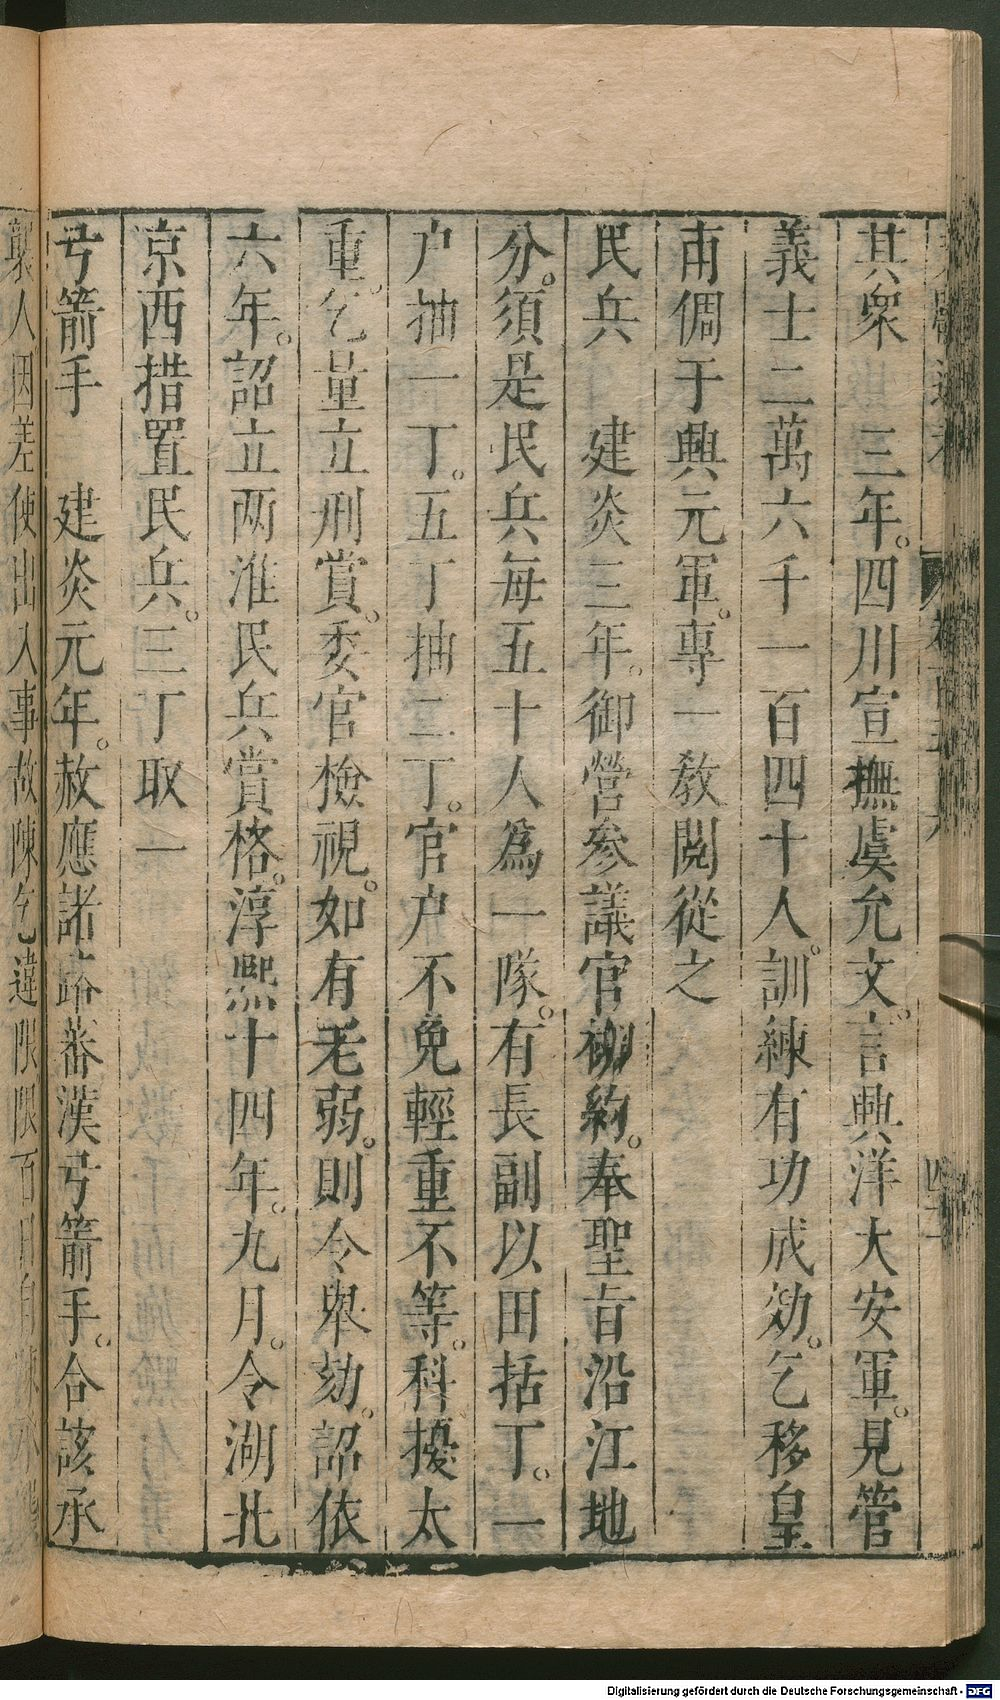 其衆　三年。四川宣撫虞允文。言興洋大安軍。見管
義士二萬六千一百四十人。訓練有功成効。乞移皇
甫倜于興元軍。專一教閱從之
民兵　建炎三年。御營參議官柳約。奉聖旨沿江地
分。須是民兵每五十人爲一隊。有長副以田括丁。一
户抽一丁。五丁抽二丁。官户不免輕重不等。科擾太
重。乞量立刑賞。委官檢視。如有老弱。則令舉劾。詔依
六年。詔立两淮民兵賞格。淳熙十四年。九月。令湖北
京西措置民兵。三丁取一
弓箭手　建炎元年。赦應諸路蕃漢弓箭手。合該承
襲人因差使出入事故陳乞違限限百日自陳
Digitalisierung gefördert durch die Deutsche Forschungsgemeinschaft - DFG